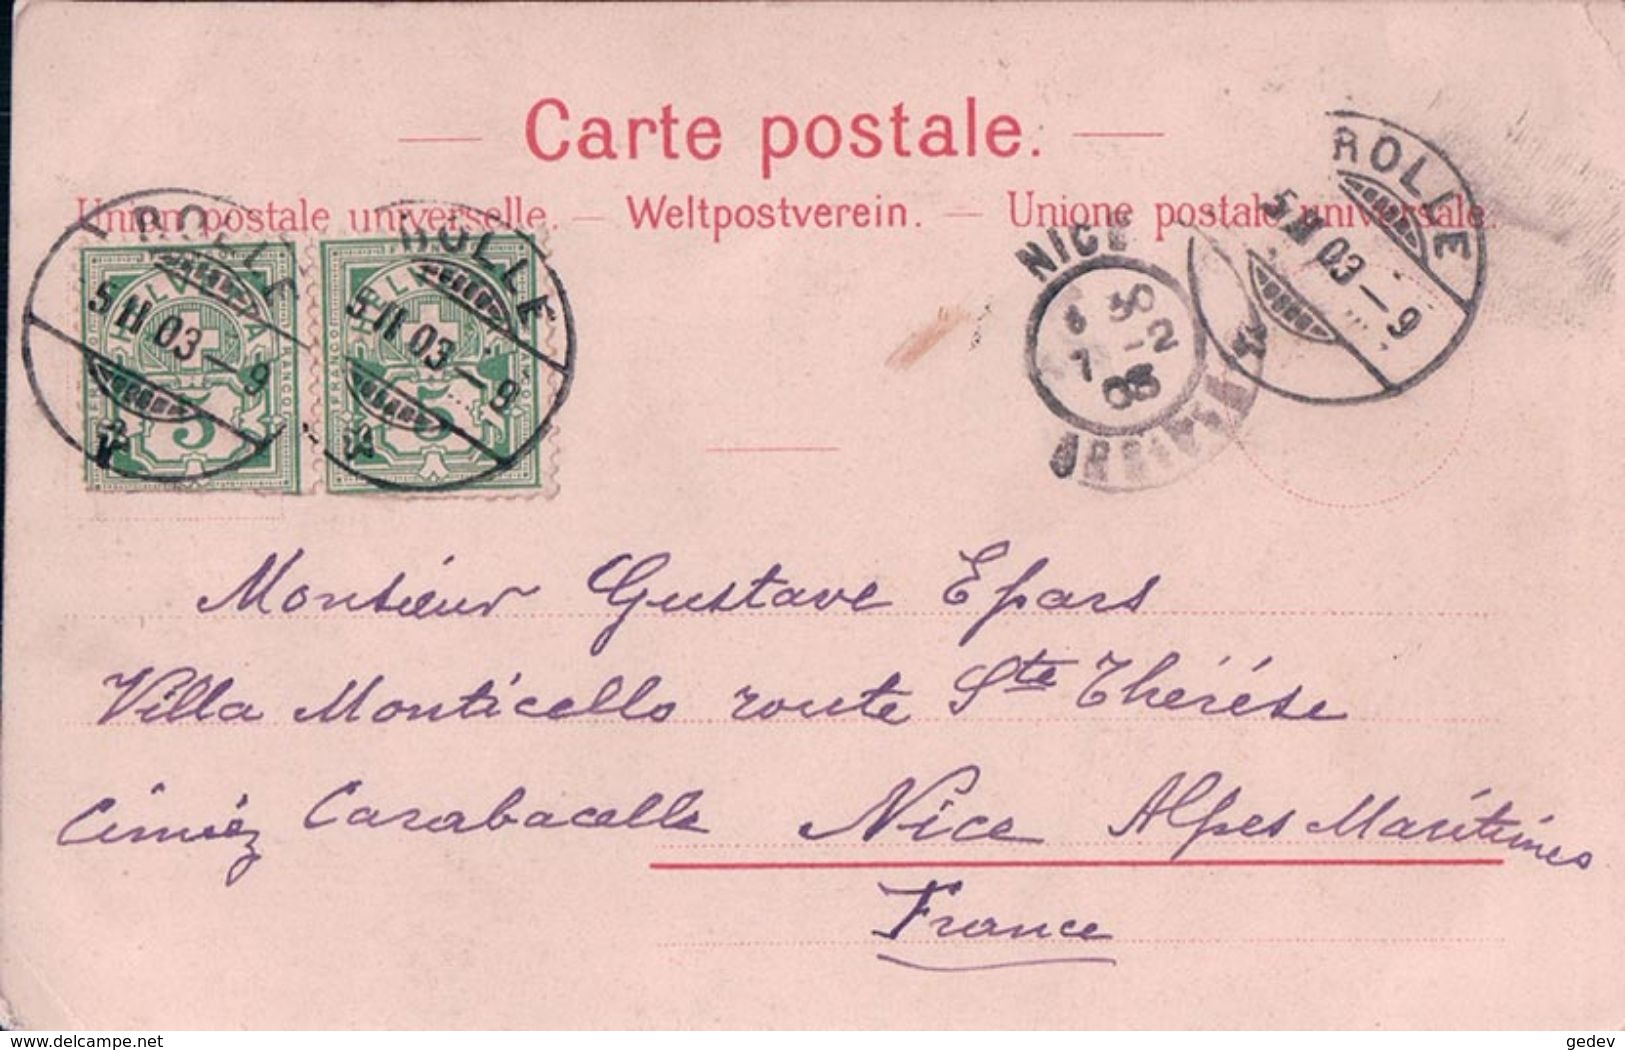 Carte postale.
Union postale universelle. — Weltpostverein. — Unione postale universale.
ROLLE
5 II 03 – 9
HELVETIA
FRANCO
5
ROLLE
5 II 03 – 9
HELVETIA
FRANCO
5
NICE
7 -2
03
ARRIVEE
ROLLE
5 II 03 – 9
Monsieur Gustave Epars
Villa Monticello route Ste Thérése
Cimiez Carabacelle Nice Alpes Maritimes
France
www.delcampe.net
gedev